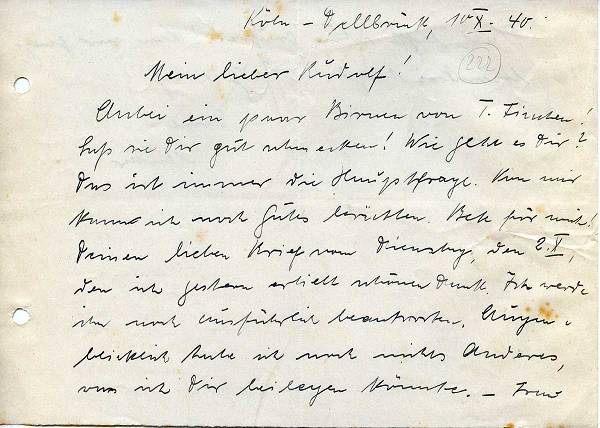 Köln-Dellbrück, 10.X.40.
222
Mein lieber Rudolf!
Anbei ein paar Birnen von T. Finchen!
Laß sie Dir gut schmecken! Wie geht es Dir?
Das ist immer die Hauptfrage. Von mir
kann ich noch Gutes berichten. Bete für mich!
Deinen lieben Brief vom Dienstag, den 8.X.,
den ich gestern erhielt schönen Dank. Ich werde
ihn noch ausführlich beantworten. Augen-
blicklich habe ich noch nichts Anderes,
was ich Dir beilegen könnte. –